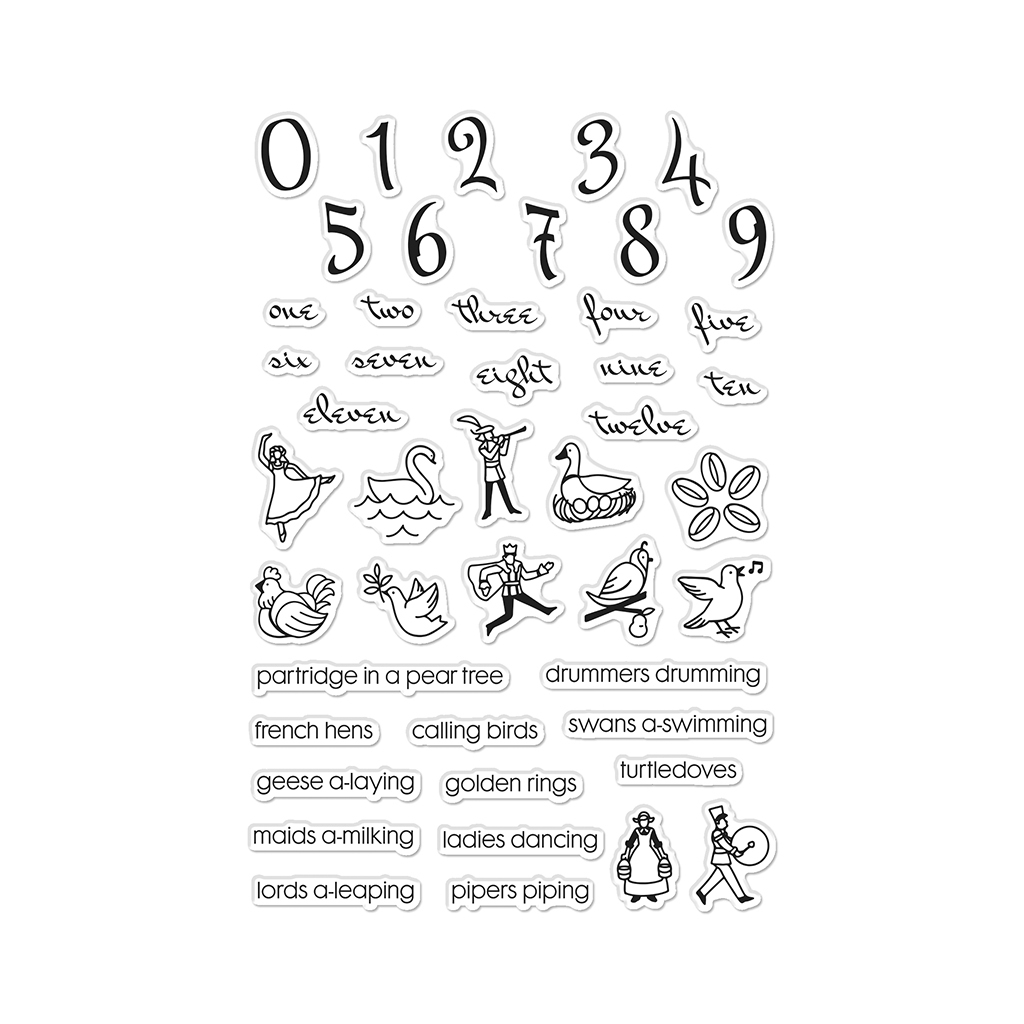 0 1 2 3 4
5 6 7 8 9
one two three four five
six seven eight nine ten
eleven twelve
partridge in a pear tree
drummers drumming
french hens
calling birds
swans a-swimming
geese a-laying
golden rings
turtledoves
maids a-milking
ladies dancing
lords a-leaping
pipers piping